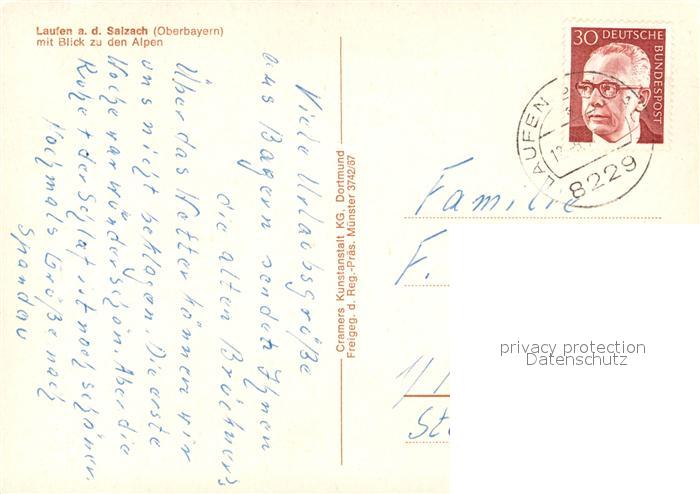 Laufen a. d. Salzach (Oberbayern)
mit Blick zu den Alpen
Viele Urlaubsgrüße
aus Bayern sendet Ihnen
die alten Brückners
Über das Wetter können wir
uns nicht beklagen. Die erste
Woche war wunderschön. Aber die
Ruhe + der Schlaf ist noch schöner.
Nochmals Grüße nach
Spandau
Cramers Kunstanstalt KG, Dortmund
Freigeg. d. Reg.-Präs. Münster 3742/67
30 DEUTSCHE
BUNDESPOST
LAUFEN
8229
Familie
F.
privacy protection
Datenschutz